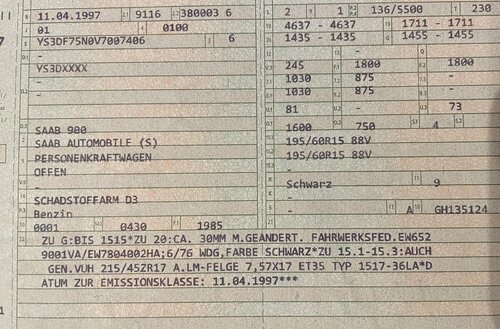 11.04.1997 9116 380003 6
01 0100
YS3DF75N0V7007406 6
-
YS3DXXXX
-
-
SAAB 900
SAAB AUTOMOBILE (S)
PERSONENKRAFTWAGEN
OFFEN
-
SCHADSTOFFARM D3
Benzin
0001 0430 1985
2 1 136/5500 230
4637 - 4637 1711 - 1711
1435 - 1435 1455 - 1455
- - -
245 1800 1800
1030 875 -
1030 875 -
81 - 73
1600 750 4 -
195/60R15 88V
195/60R15 88V
-
Schwarz 9
-
- A GH135124
ZU G:BIS 1515*ZU 20:CA. 30MM M.GEANDERT. FAHRWERKSFED.EW652
9001VA/EW7804002HA;6/76 WDG,FARBE SCHWARZ*ZU 15.1-15.3:AUCH
GEN.VUH 215/45ZR17 A.LM-FELGE 7,57X17 ET35 TYP 1517-36LA*D
ATUM ZUR EMISSIONSKLASSE: 11.04.1997***